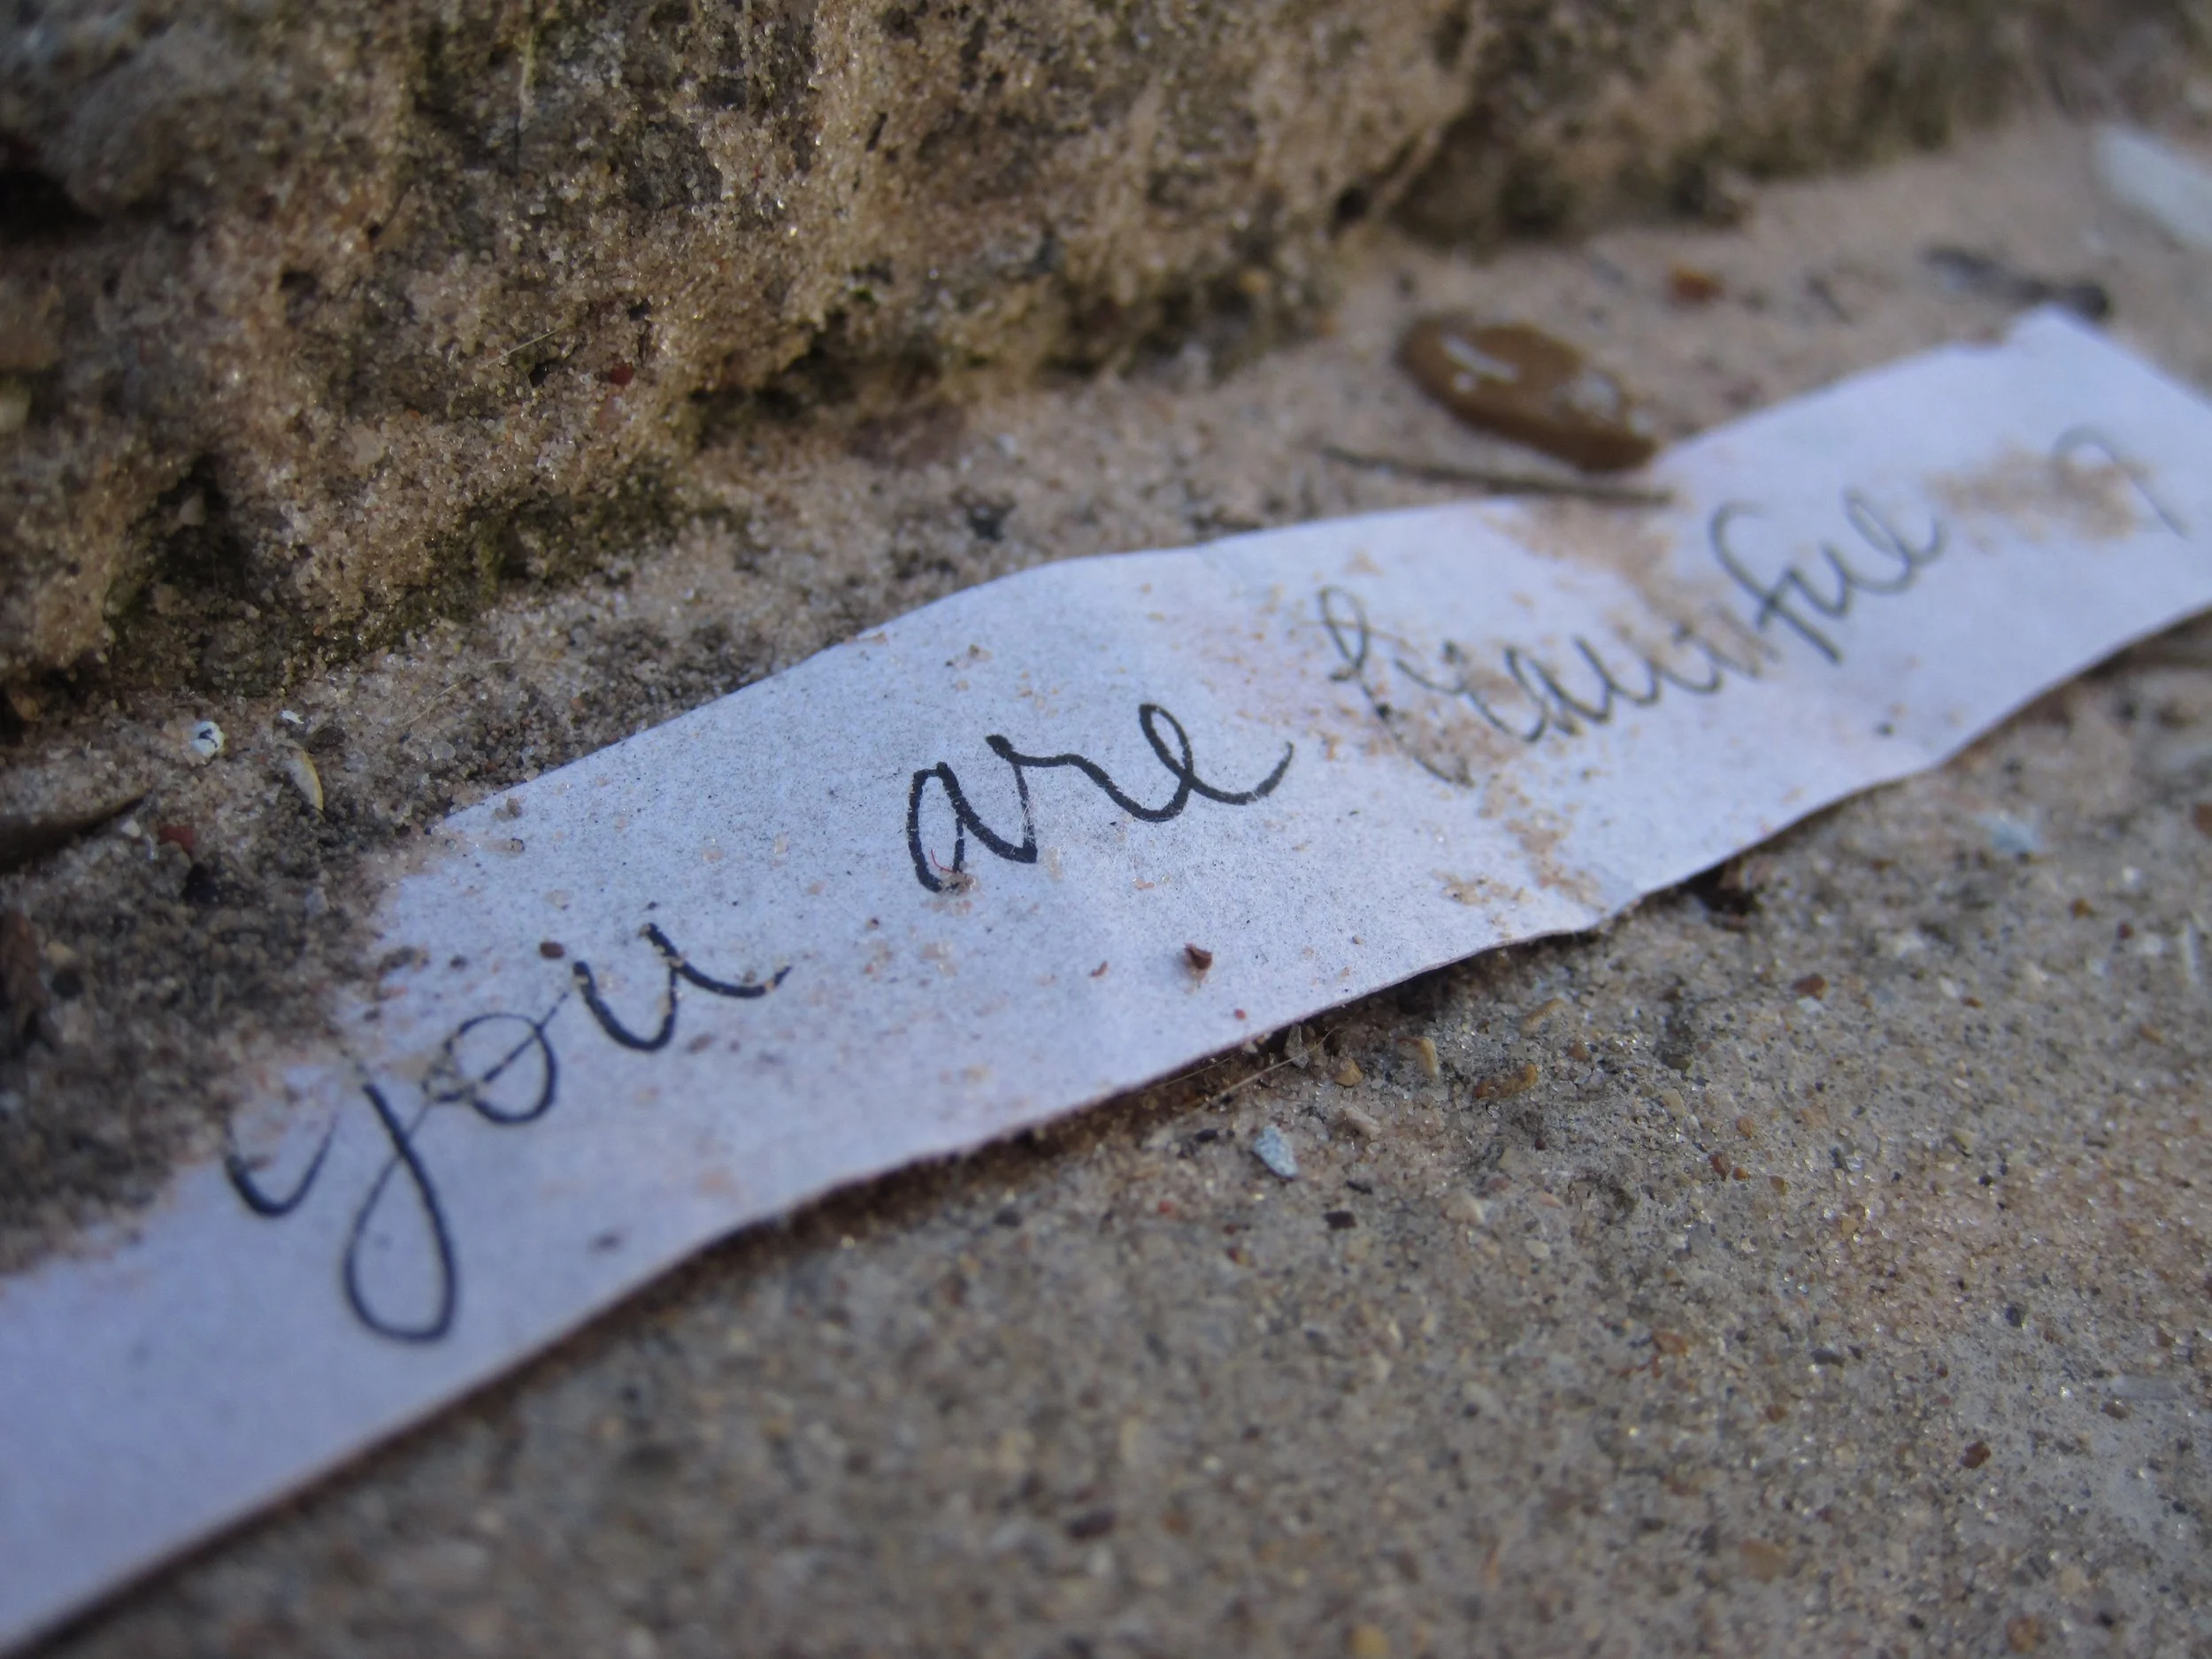 you are beautiful